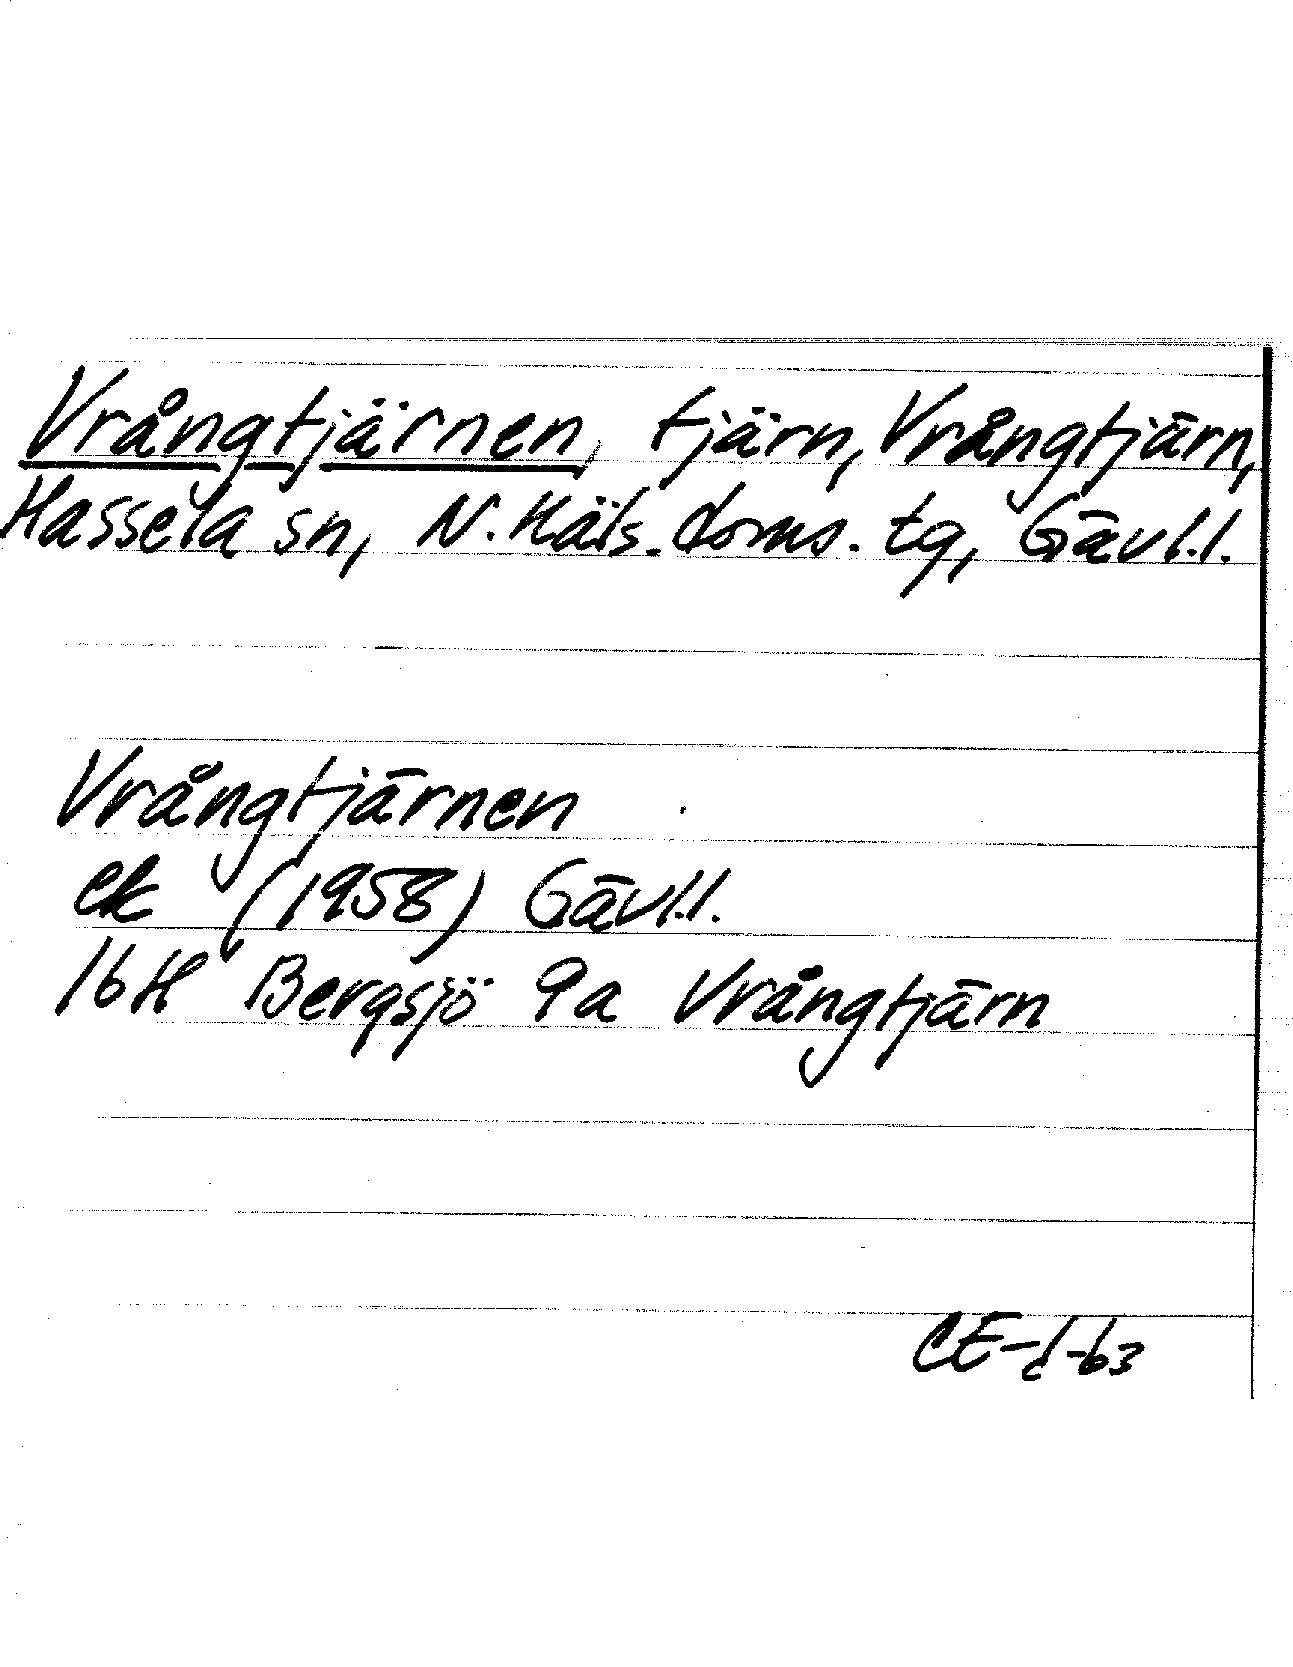 Vrångtjärnen, tjärn, Vrångtjärn,
Hassela sn, N. Häls. doms. tg, Gävl.l.
Vrångtjärnen
ek (1958) Gävl.l.
16H Bergsjö 9a Vrångtjärn
CE-d-b3